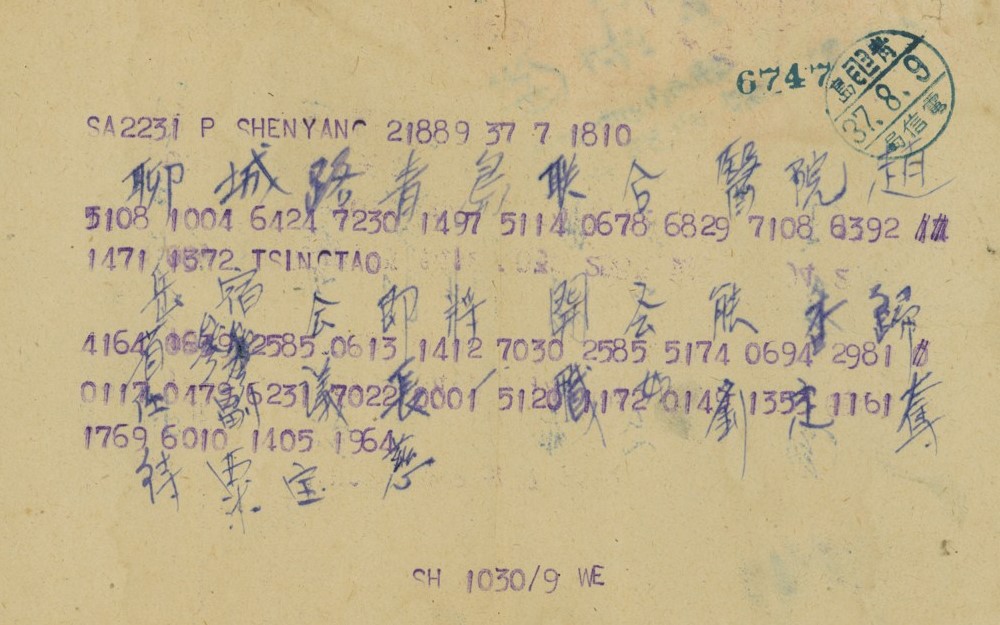 6747
青島
37.8.9
電信局
SA2231 P SHENYANG 21889 37 7 1810
聊城路青島联合醫院趙
5108 1004 6424 7230 1497 5114 0678 6829 7108 6392
1471 TSINGTAO
岳宿
省 会即將開会
4164 2585 0613 1412 7030 2585 5174 0694 2981
任副議長一職 劉定
0117 0479 6231 7022 0001 5120 1172 1161
1769 6010 1405 1964
宝
SH 1030/9 WE